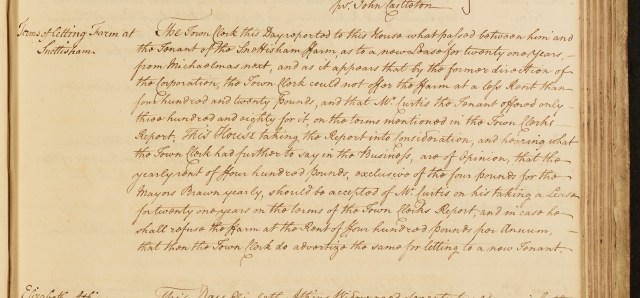 pr. John Castleton
Terms of Letting Farm at
Snettisham.
The Town Clerk this Day reported to this House what passed between him and
the Tenant of the Snettisham Farm as to a new Lease for twenty one years,
from Michaelmas next, and as it appears that by the former direction of
the Corporation, the Town Clerk could not offer the Farm at a less Rent than
four hundred and twenty Pounds, and that Mr. Curtis the Tenant offered only
three hundred and eighty for it, on the terms mentioned in the Town Clerk's
Report; This House taking the Report into Consideration, and hearing what
the Town Clerk had further to say in the Business, are of Opinion, that the
yearly rent of Four hundred pounds, exclusive of the four pounds for the
Mayors Brawn yearly, should be accepted of Mr. Curtis on his taking a Lease
for twenty one years in the terms of the Town Clerks Report, and in case he
shall refuse the Farm at the Rent of Four hundred Pounds per Annum,
that then the Town Clerk do advertize the same for letting to a new Tenant.
Elizabeth
This Day